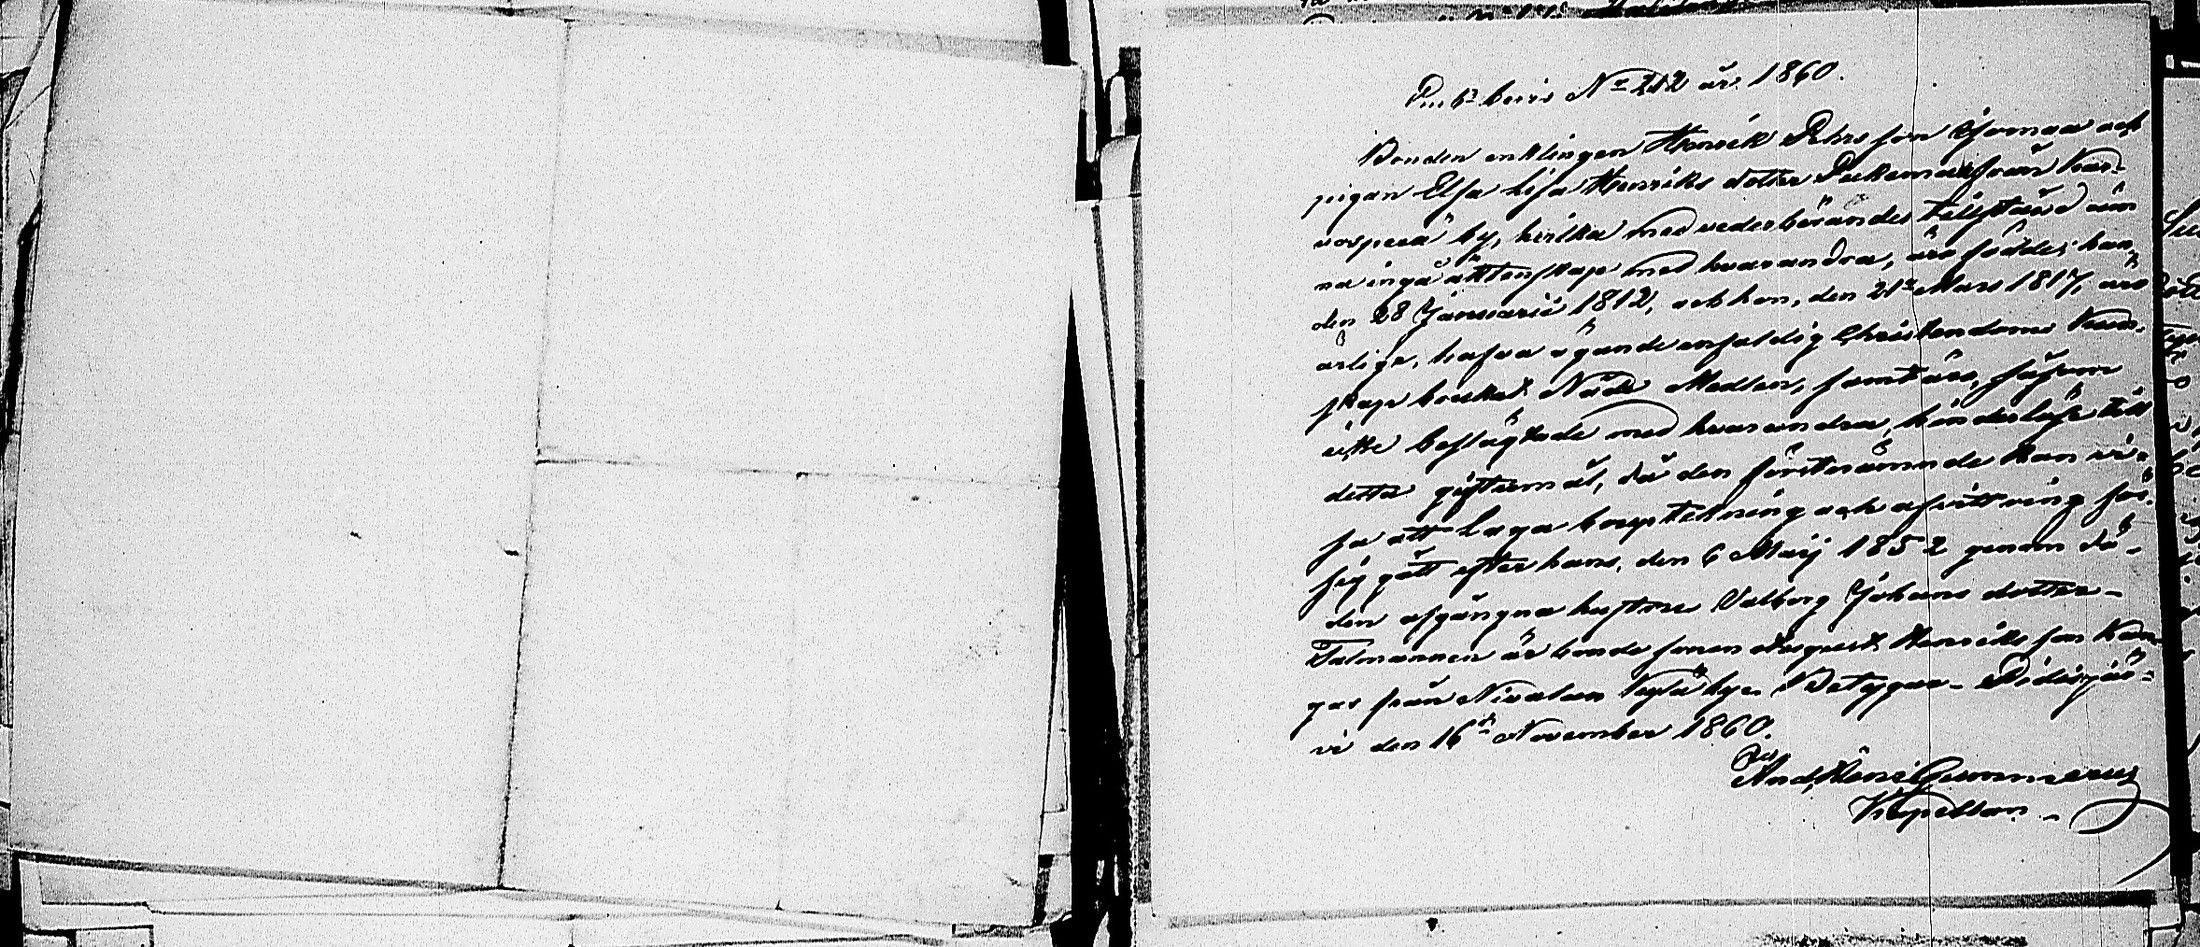 bevis No 212 år 1860.
Bonden enklingen Henrik Petersson och
pigan Elsa Lisa Henriks dotter från Kar-
vosperä by, hvilka med vederbörandes tillstånd äm-
na ingå äktenskap med hvarandra, äro födde; han,
den 28 Januarii 1812, och hon, den 21 Mars 1817, äro
ärlige, hafva ägande enfaldig Christendoms kun-
skap brukat Nåde Medlen, samt äro, såsom
icke beslägtade med hvarandra, hinderlöse till
detta giftermål, då den förstnämnde kan vi-
sa att laga bouptekning och afvittring för-
sig gått efter hans, den 6 Maij 1852 genom dö-
den afgångna hustru Valborg Johans dotter -
Talmannen är bonde sonen Henriks son Kan-
gas från Nivalan by. Betygar - Pidisjär-
vi den 16de November 1860.
And. Henr. Gummerus
Kapellan.